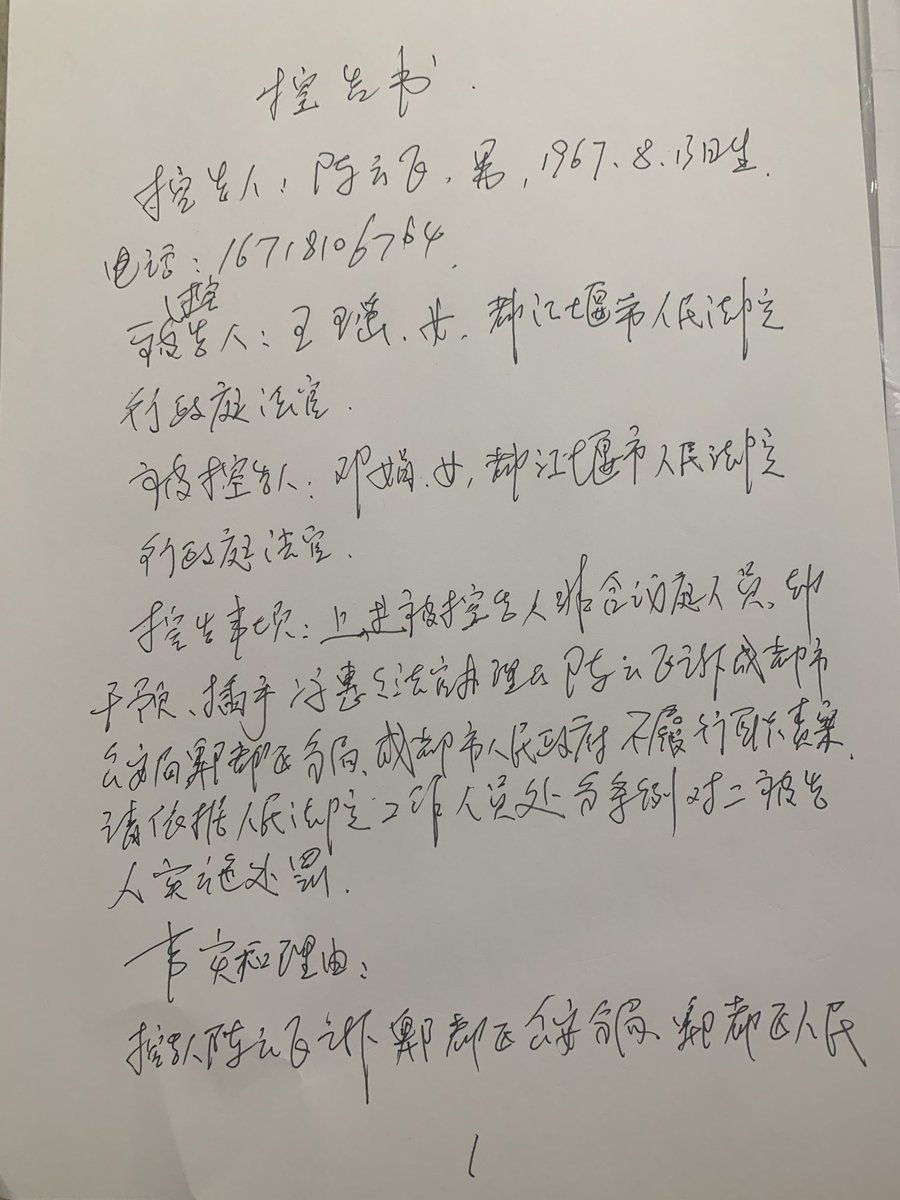 控告书.
控告人：陈云飞，男，1967.8.13日生.
电话：16718106764.
被控告人：王瑶、女，都江堰市人民法院
行政庭法官.
被控告人：邓娟、女，都江堰市人民法院
行政庭法官.
控告事项：上述被控告人非合议庭人员，却
干预、插手法官办理了陈云飞诉成都市
公安局郫都区分局、成都市人民政府不履行职责案.
请依据人民法院工作人员处分条例对二被告
人实施处罚.
事实和理由：
控告人陈云飞诉郫都区公安分局、郫都区人民
1